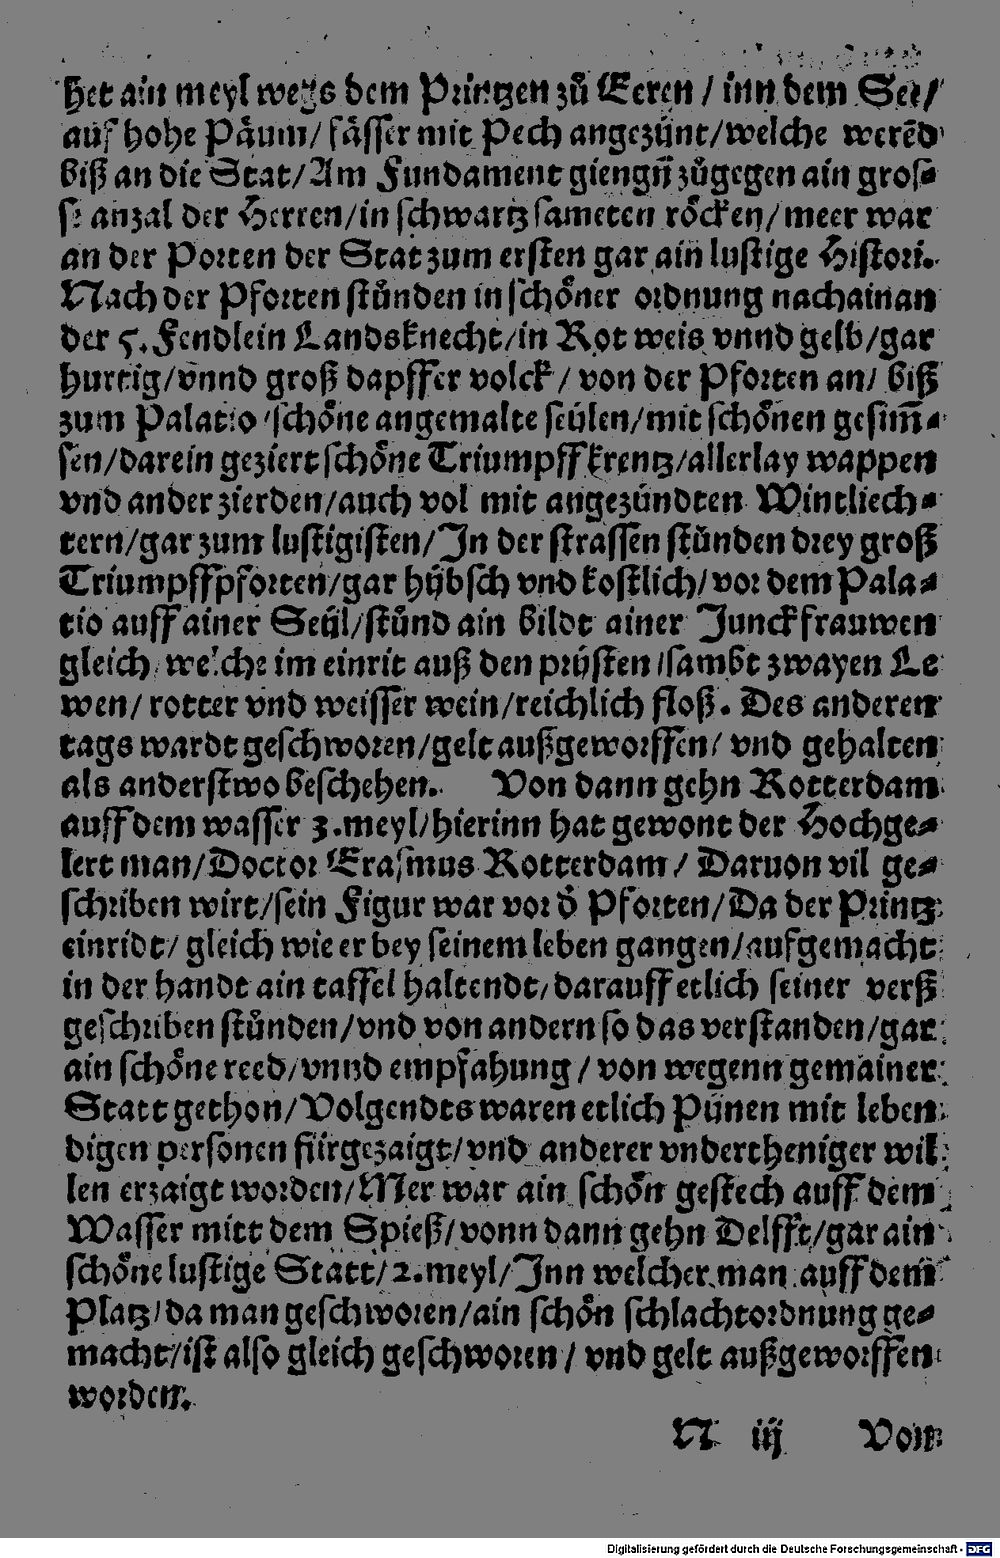 het ain meyl wegs dem Printzen zů Eeren / inn dem See/
auf hohe Påum/ fåsser mit Pech angezünt/welche werēd
biß an die Stat/Am Fundament giengn̄ zůgegen ain gros⸗
se anzal der Herren/in schwartz sameten röcken/meer war
an der Porten der Stat zum ersten gar ain lustige Histori.
Nach der Pforten stůnden in schöner ordnung nachainan
der 5. Fendlein Landsknecht/in Rot weis vnnd gelb/gar
hurtig/vnnd groß dapffer volck / von der Pforten an/ biß
zum Palatio /schöne angemalte seülen/mit schönen gesim̄⸗
sen/darein geziert schöne Triumpff krentz/allerlay wappen
vnd ander zierden/auch vol mit angezündten Wintliech⸗
tern/gar zum lustigisten/In der strassen stůnden drey groß
Triumpffpforten/gar hübsch vnd kostlich/vor dem Pala⸗
tio auff ainer Seül/stůnd ain bildt ainer Junckfrauwen
gleich/welche im einrit auß den prüsten /sambt zwayen Le
wen/ rotter vnd weisser wein/reichlich floß. Des anderen
tags wardt geschworen/gelt außgeworffen/ vnd gehalten
als anderstwo beschehen. Von dann gehn Rotterdam
auff dem wasser 3.meyl/hierinn hat gewont der Hochge⸗
lert man/Doctor Erasmus Rotterdam / Daruon vil ge⸗
schriben wirt/sein Figur war vor d̄ Pforten/Da der Printz
einridt/ gleich wie er bey seinem leben gangen/aufgemacht
in der handt ain taffel haltendt/darauff etlich seiner verß
geschriben stůnden/vnd von andern so das verstanden/gar
ain schöne reed/vnnd empfahung / von wegenn gemainer
Statt gethon/Volgendts waren etlich Pünen mit leben
digen personen fürgezaigt/vnd anderer vndertheniger wil
len erzaigt worden/Mer war ain schön gestech auff dem
Wasser mitt dem Spieß/vonn dann gehn Delfft/gar ain
schöne lustige Statt/2.meyl/Inn welcher man auff dem
Platz/da man geschworen/ain schön schlachtordnung ge⸗
macht/ist also gleich geschworen / vnd gelt außgeworffen
worden.
N iij Von
Digitalisierung gefördert durch die Deutsche Forschungsgemeinschaft - DFG